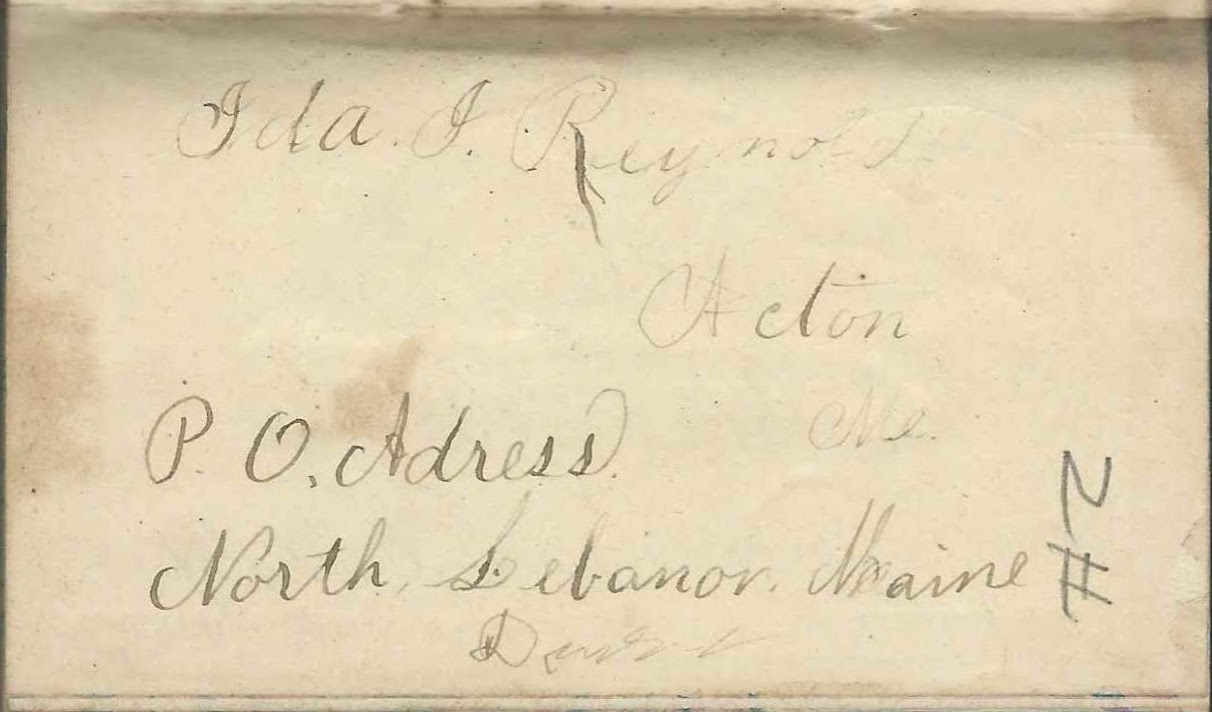 Ida. I. Reynolds
Acton
Me.
P. O. Adress.
North, Lebanon, Maine
#2